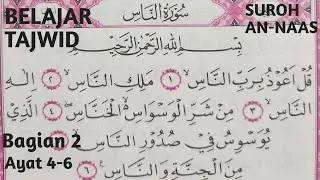 BELAJAR
TAJWID
SUROH
AN-NAAS
سُورَةُ النَّاسِ
بِسْمِ اللهِ الرَّحْمٰنِ الرَّحِيْمِ
قُلْ اَعُوْذُ بِرَبِّ النَّاسِ ۝١ مَلِكِ النَّاسِ ۝٢ اِلٰهِ
النَّاسِ ۝٣ مِنْ شَرِّ الْوَسْوَاسِ الْخَنَّاسِ ۝٤ الَّذِيْ
يُوَسْوِسُ فِيْ صُدُوْرِ النَّاسِ
مِنَ الْجِنَّةِ وَالنَّاسِ ۝٦
Bagian 2
Ayat 4-6